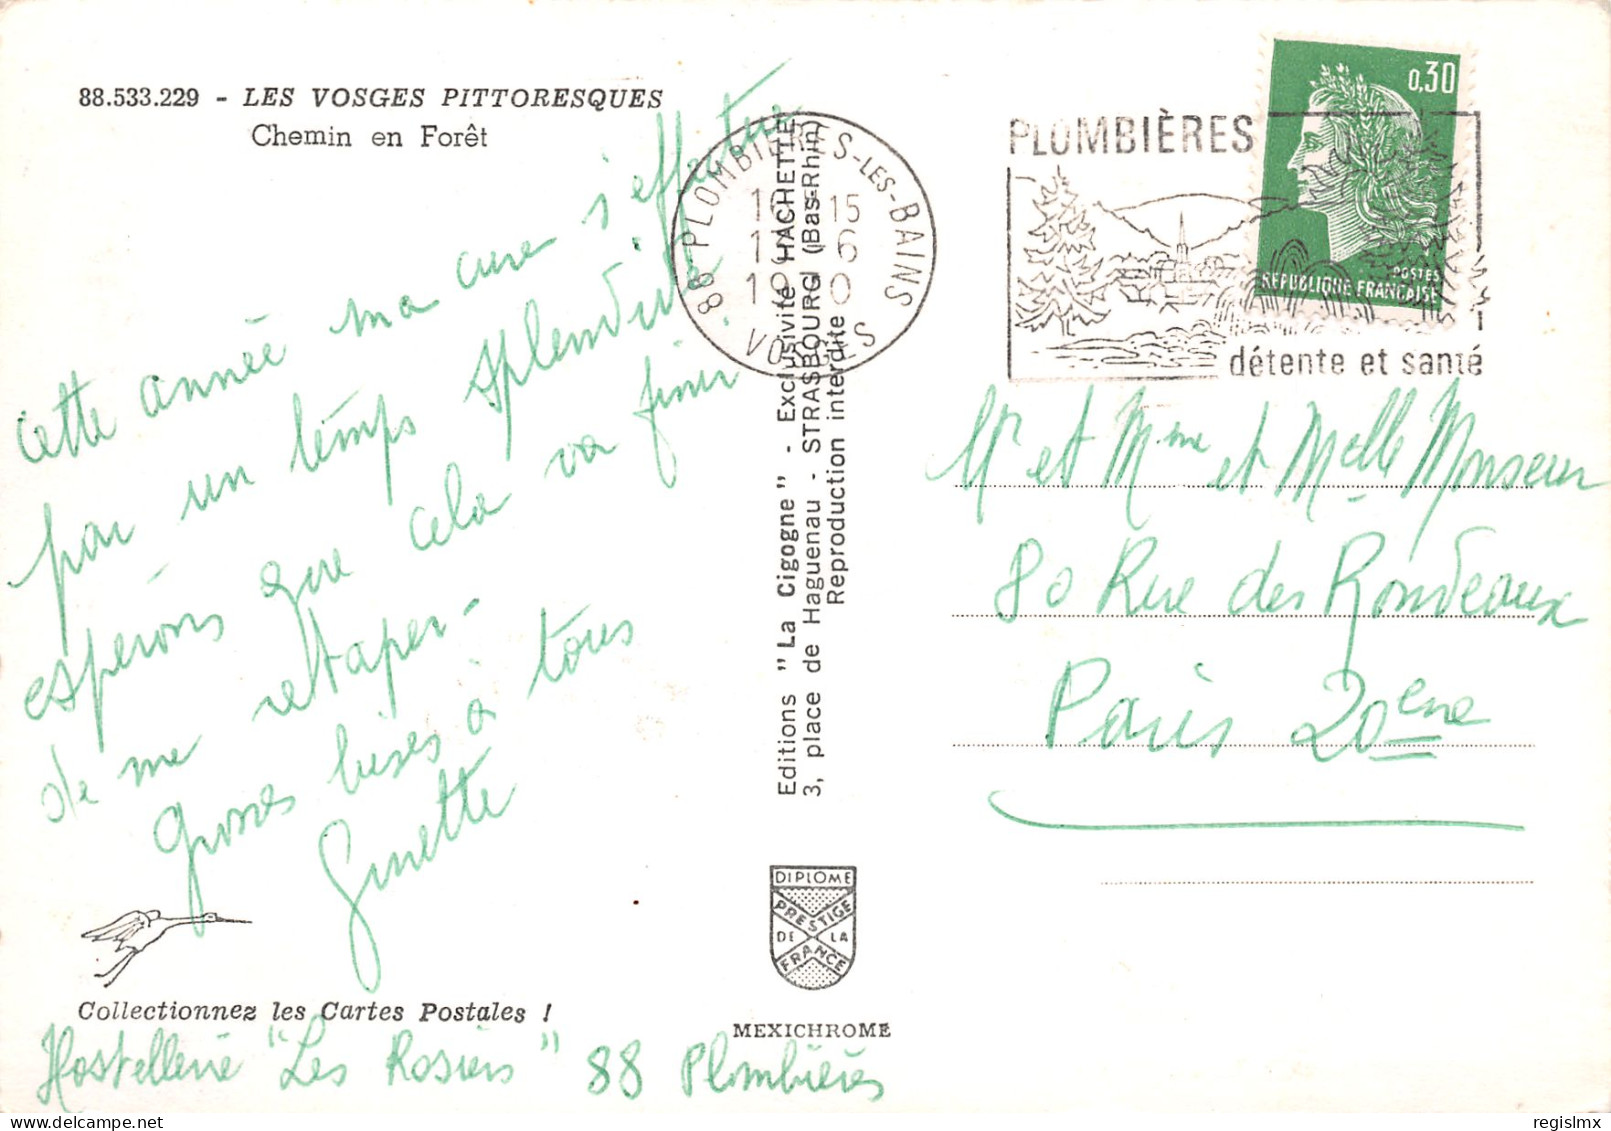 88.533.229 - LES VOSGES PITTORESQUES
Chemin en Forêt
cette année ma cure s'effectue
par un temps splendide.
esperons que cela va finir
de me retaper-
Grosses bises à tous
Ginette
Collectionnez les Cartes Postales !
Hostellerie "Les Rosiers" 88 Plombières
Editions "La Cigogne" - Exclusivité HACHETTE
3, place de Haguenau - STRASBOURG (Bas-Rhin)
Reproduction interdite
DIPLOME
PRESTIGE
DE LA
FRANCE
MEXICHROME
88 PLOMBIERES-LES-BAINS
VOSGES
PLOMBIÈRES
détente et santé
0,30
POSTES
REPUBLIQUE FRANÇAISE
Mr et Mme et Melle Monseur
80 Rue des Rondeaux
Paris 20eme
regislmx
delcampe.net